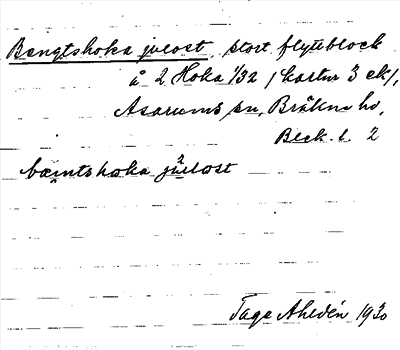 Bengtshoka julost, stort flyttblock
å 2 Hoka 1/32 (kartur 3 ek),
Asarums sn, Bräkne hd,
Bleck. l. 2
bæintshoka júlost
Tage Ahldén 1930